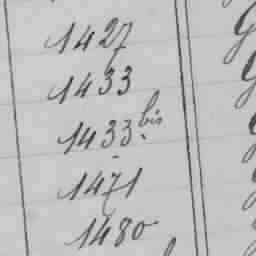 1427
1433
1433 bis
1471
1480